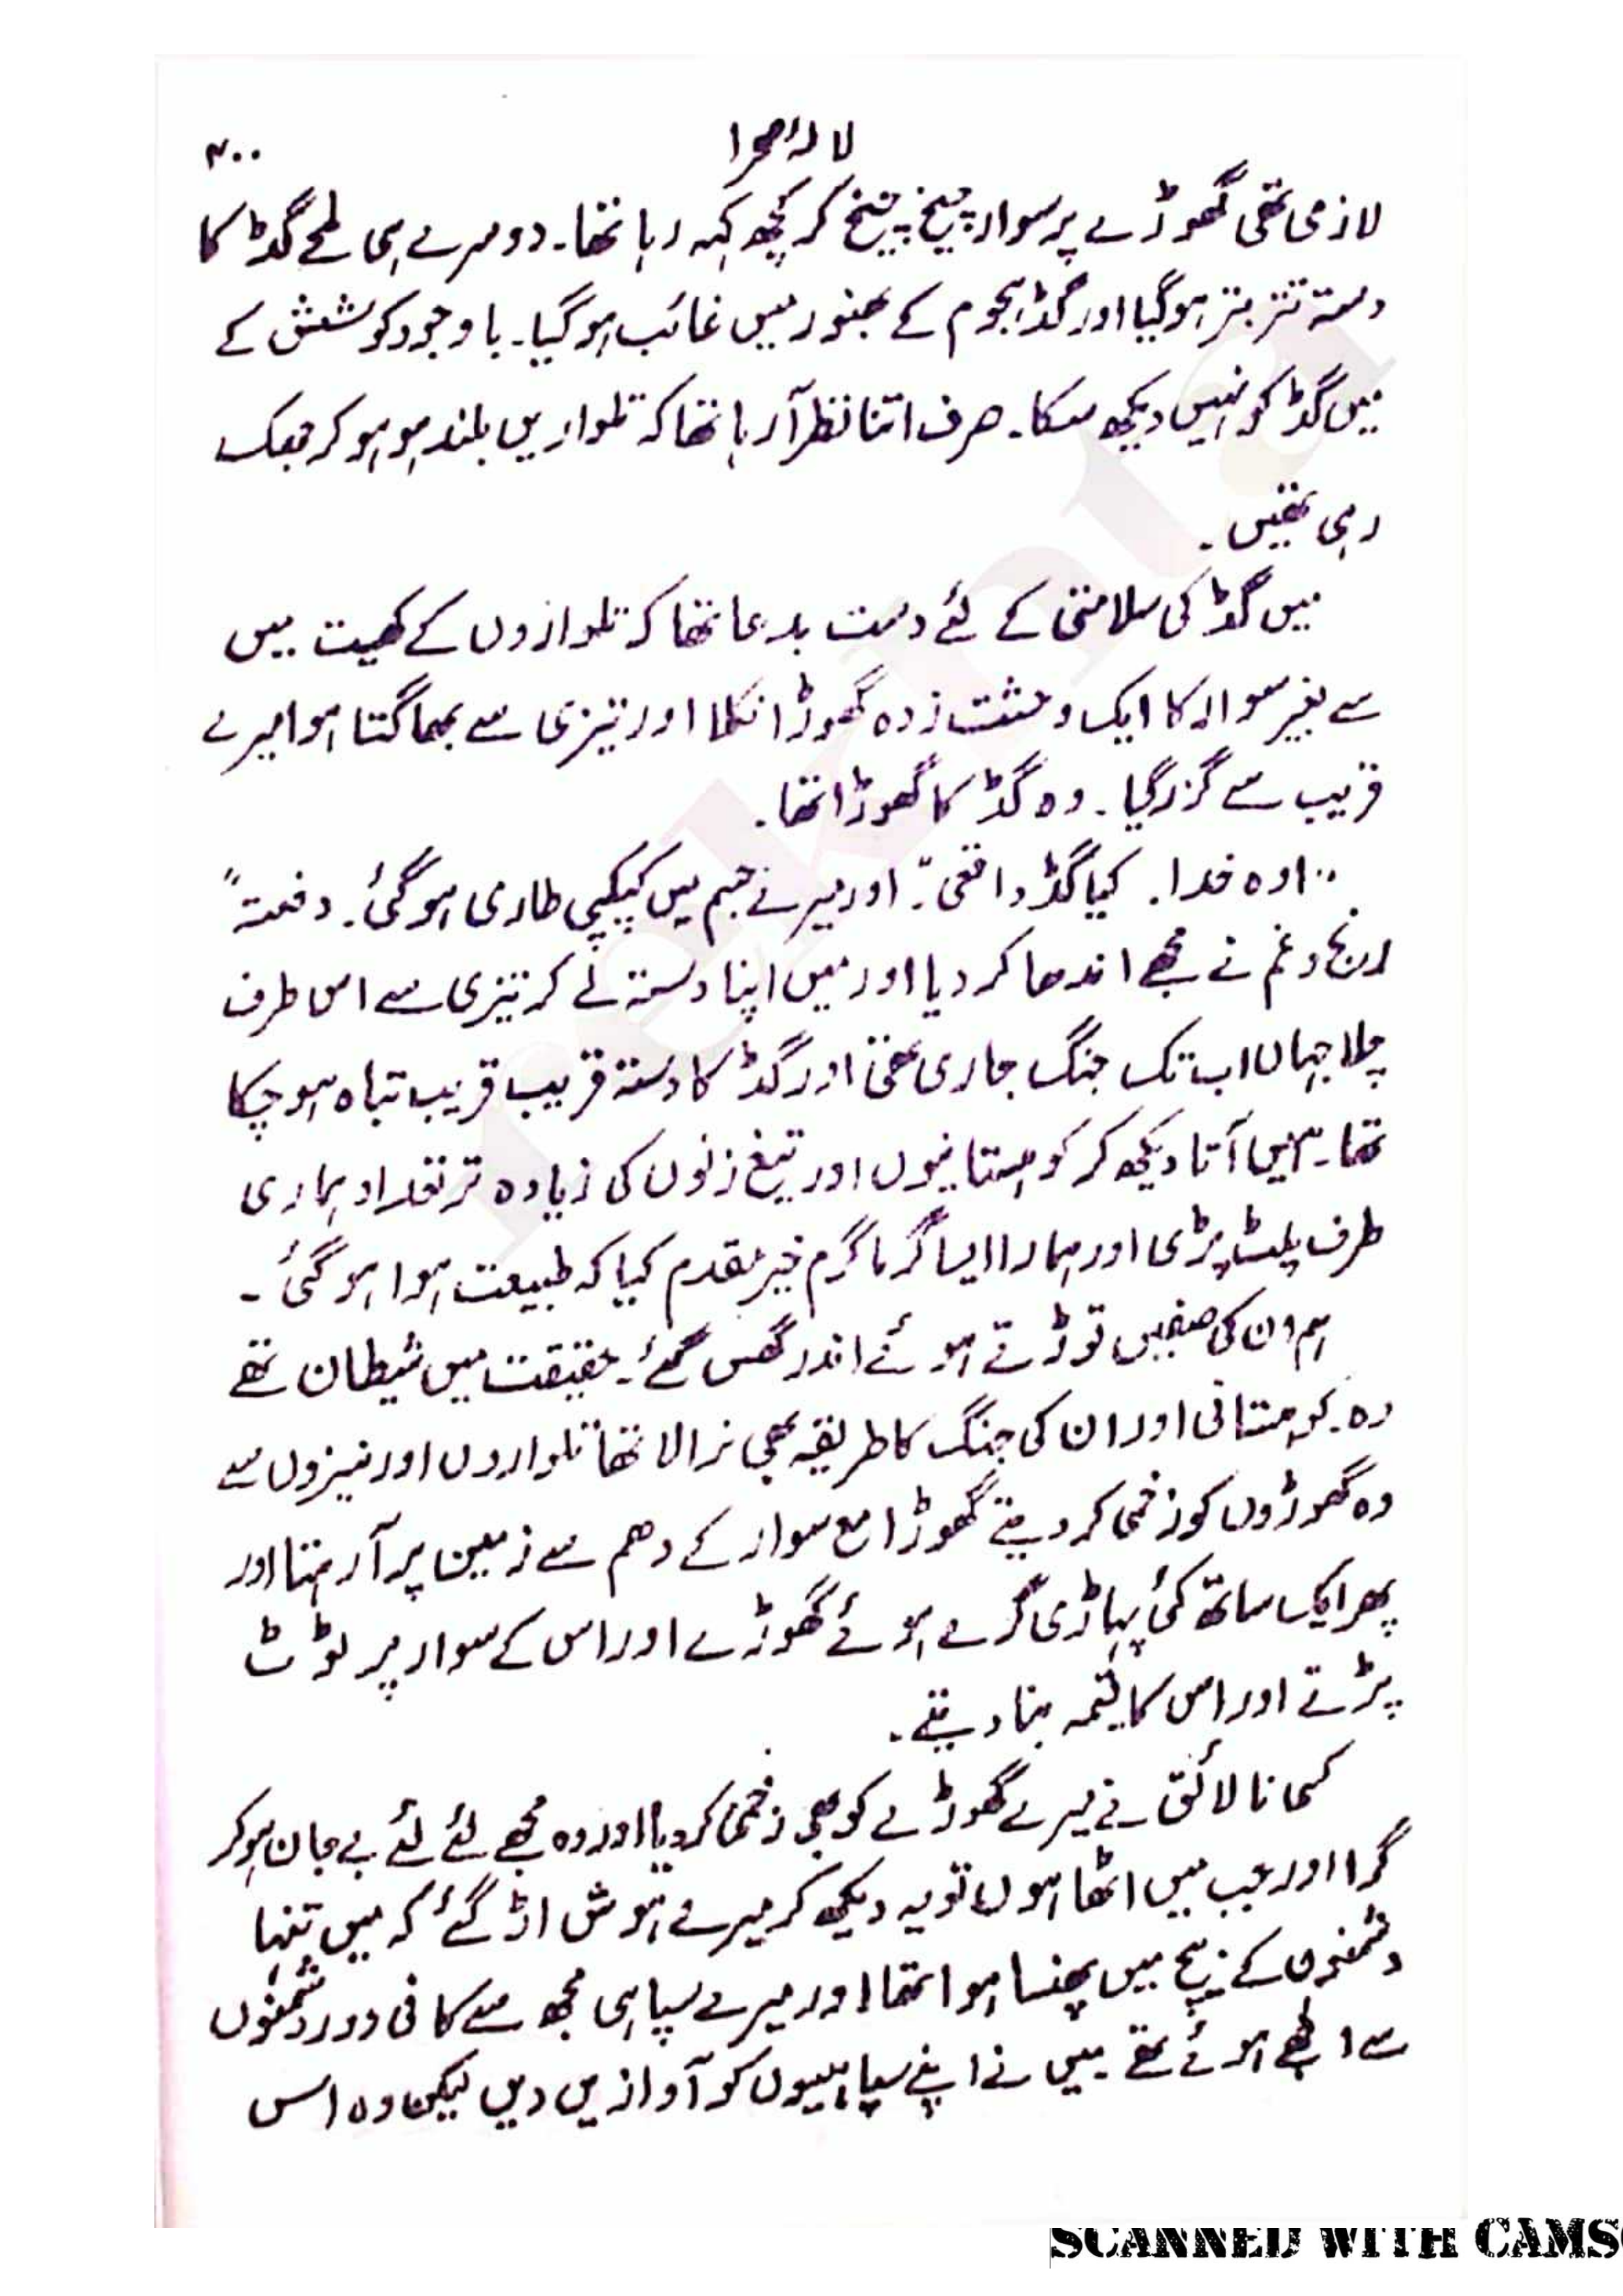 لالۂ صحرا
۳۰۰
لازمی تھی گھوڑے پر سوار چیخ چیخ کر کچھ کہہ رہا تھا۔ دوسرے ہی لمحے گڈ کا
دستہ تتر بتر ہوگیا اور گڈ ہجوم کے بھنور میں غائب ہوگیا۔ باوجود کوشش کے
میں گڈ کو نہیں دیکھ سکا۔ صرف اتنا نظر آرہا تھا کہ تلواریں بلند ہو ہو کر جھک
رہی تھیں۔
میں گڈ کی سلامتی کے لئے دست بدعا تھا کہ تلواروں کے کھیت میں
سے بغیر سوار کا ایک وحشت زدہ گھوڑا نکلا اور تیزی سے بھاگتا ہوا میرے
قریب سے گزر گیا۔ وہ گڈ کا گھوڑا تھا۔
"اوہ خدا۔ کیا گڈ واقعی"۔ اور میرے جسم میں کپکپی طاری ہوگئی۔ دفعتہً
رنج و غم نے مجھے اندھا کر دیا اور میں اپنا دستہ لے کر تیزی سے اس طرف
چلا جہاں اب تک جنگ جاری تھی اور گڈ کا دستہ قریب قریب تباہ ہو چکا
تھا۔ ہمیں آتا دیکھ کر کوہستانیوں اور تیغ زنوں کی زیادہ تر تعداد ہماری
طرف پلٹ پڑی اور ہمارا ایسا گرما گرم خیر مقدم کیا کہ طبیعت ہوا ہو گئی۔
ہم ان کی صفیں توڑتے ہوئے اندر گھس گئے۔ حقیقت میں شیطان تھے
وہ کوہستانی اور ان کی جنگ کا طریقہ بھی نرالا تھا تلواروں اور نیزوں سے
وہ گھوڑوں کو زخمی کر دیتے گھوڑا مع سوار کے دھم سے زمین پر آرہتا اور
پھر ایک ساتھ کئی پہاڑی گرے ہوئے گھوڑے اور اس کے سوار پر ٹوٹ
پڑتے اور اس کا قیمہ بنا دیتے۔
کسی نالائق نے میرے گھوڑے کو بھی زخمی کر دیا اور وہ مجھے لئے لئے بے جان ہو کر
گرا اور جب میں اٹھا ہوں تو یہ دیکھ کر میرے ہوش اڑ گئے کہ میں تنہا
دشمنوں کے بیچ میں پھنسا ہوا تھا اور میرے سپاہی مجھ سے کافی دور دشمنوں
سے الجھے ہوئے تھے میں نے اپنے سپاہیوں کو آوازیں دیں لیکن وہ اس
rekhta
SCANNED WITH CAMS